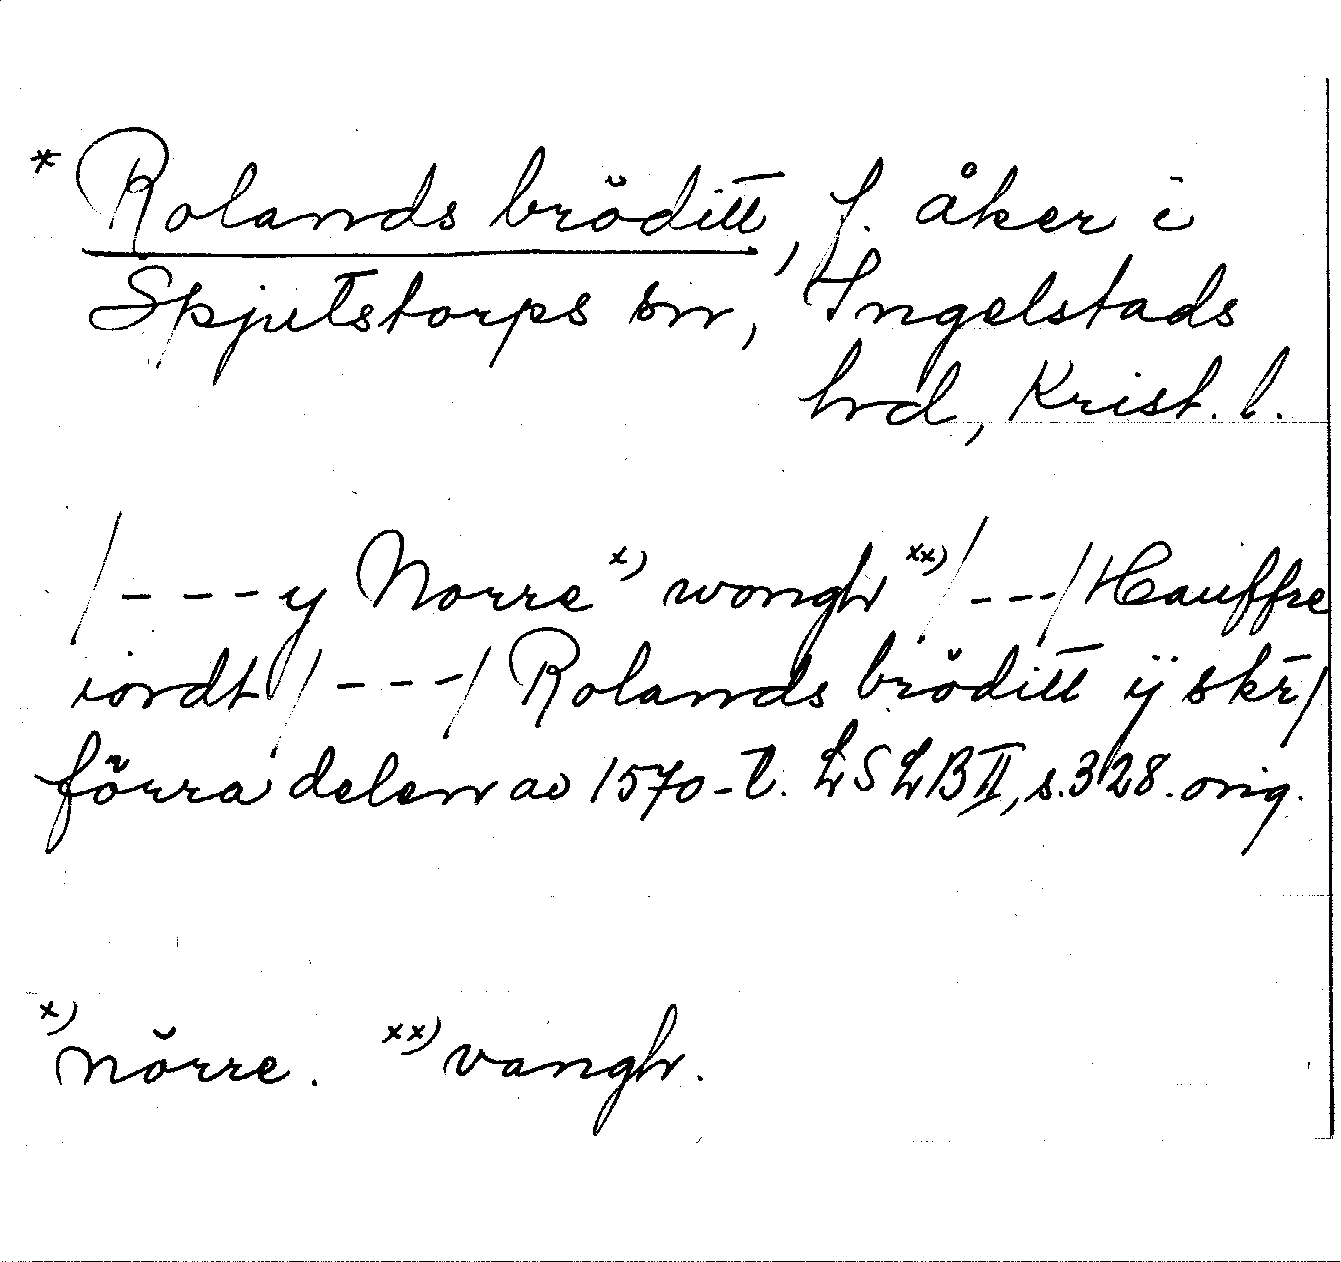 * Rolands bröditt, f. åker i
Spjutstorps sn, Ingelstads
hd, Krist. l.
/---y Norre x) wongh xx)/---/Hauffre
iordt/---/Rolands bröditt ÿ skr/
förra delen av 1570-t. LSLB II, s.328. orig.
x) nörre. xx) vangh.